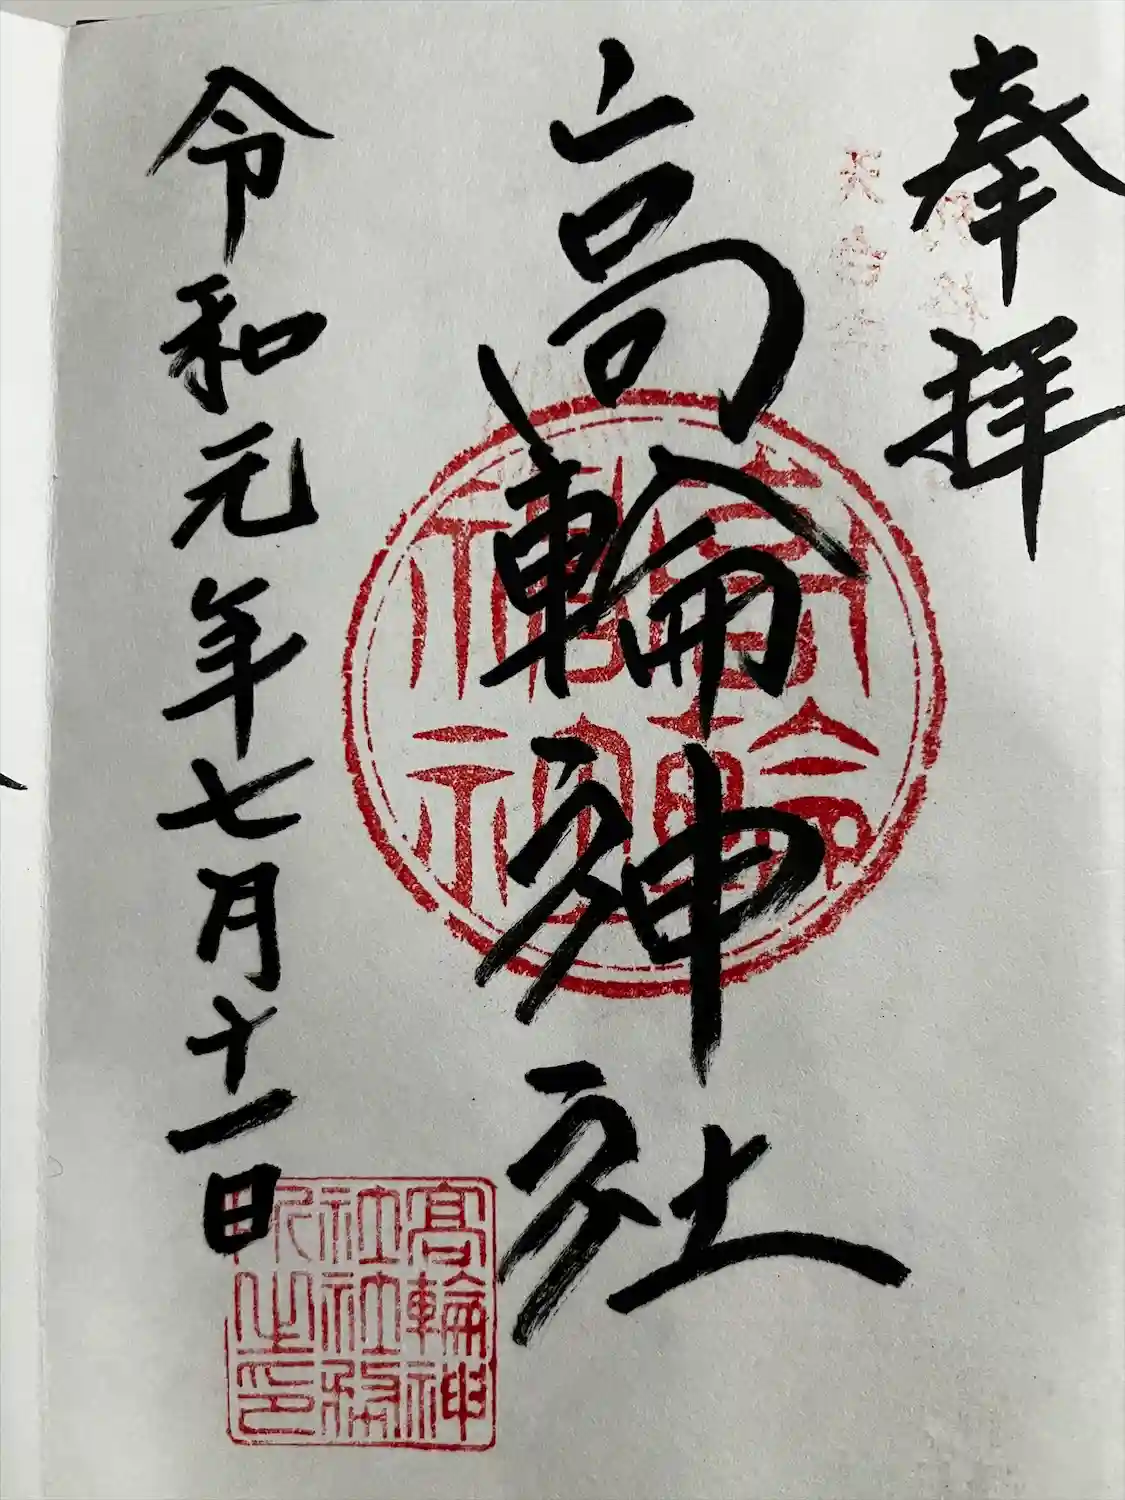 奉拝
高輪神社
令和元年七月十一日
高輪神
社社務
所之印